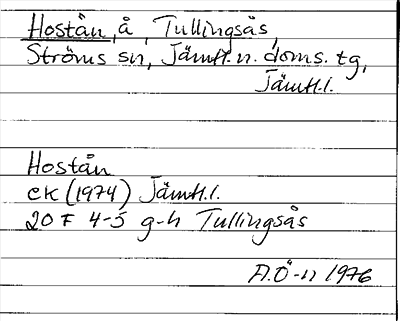 Hostån, å, Tullingsås,
Ströms sn, Jämtl. n. doms. tg,
Jämtl.l.
Hostån
ek (1974) Jämtl.l.
20 F 4-5 g-h Tullingsås
A.Ö-n 1976